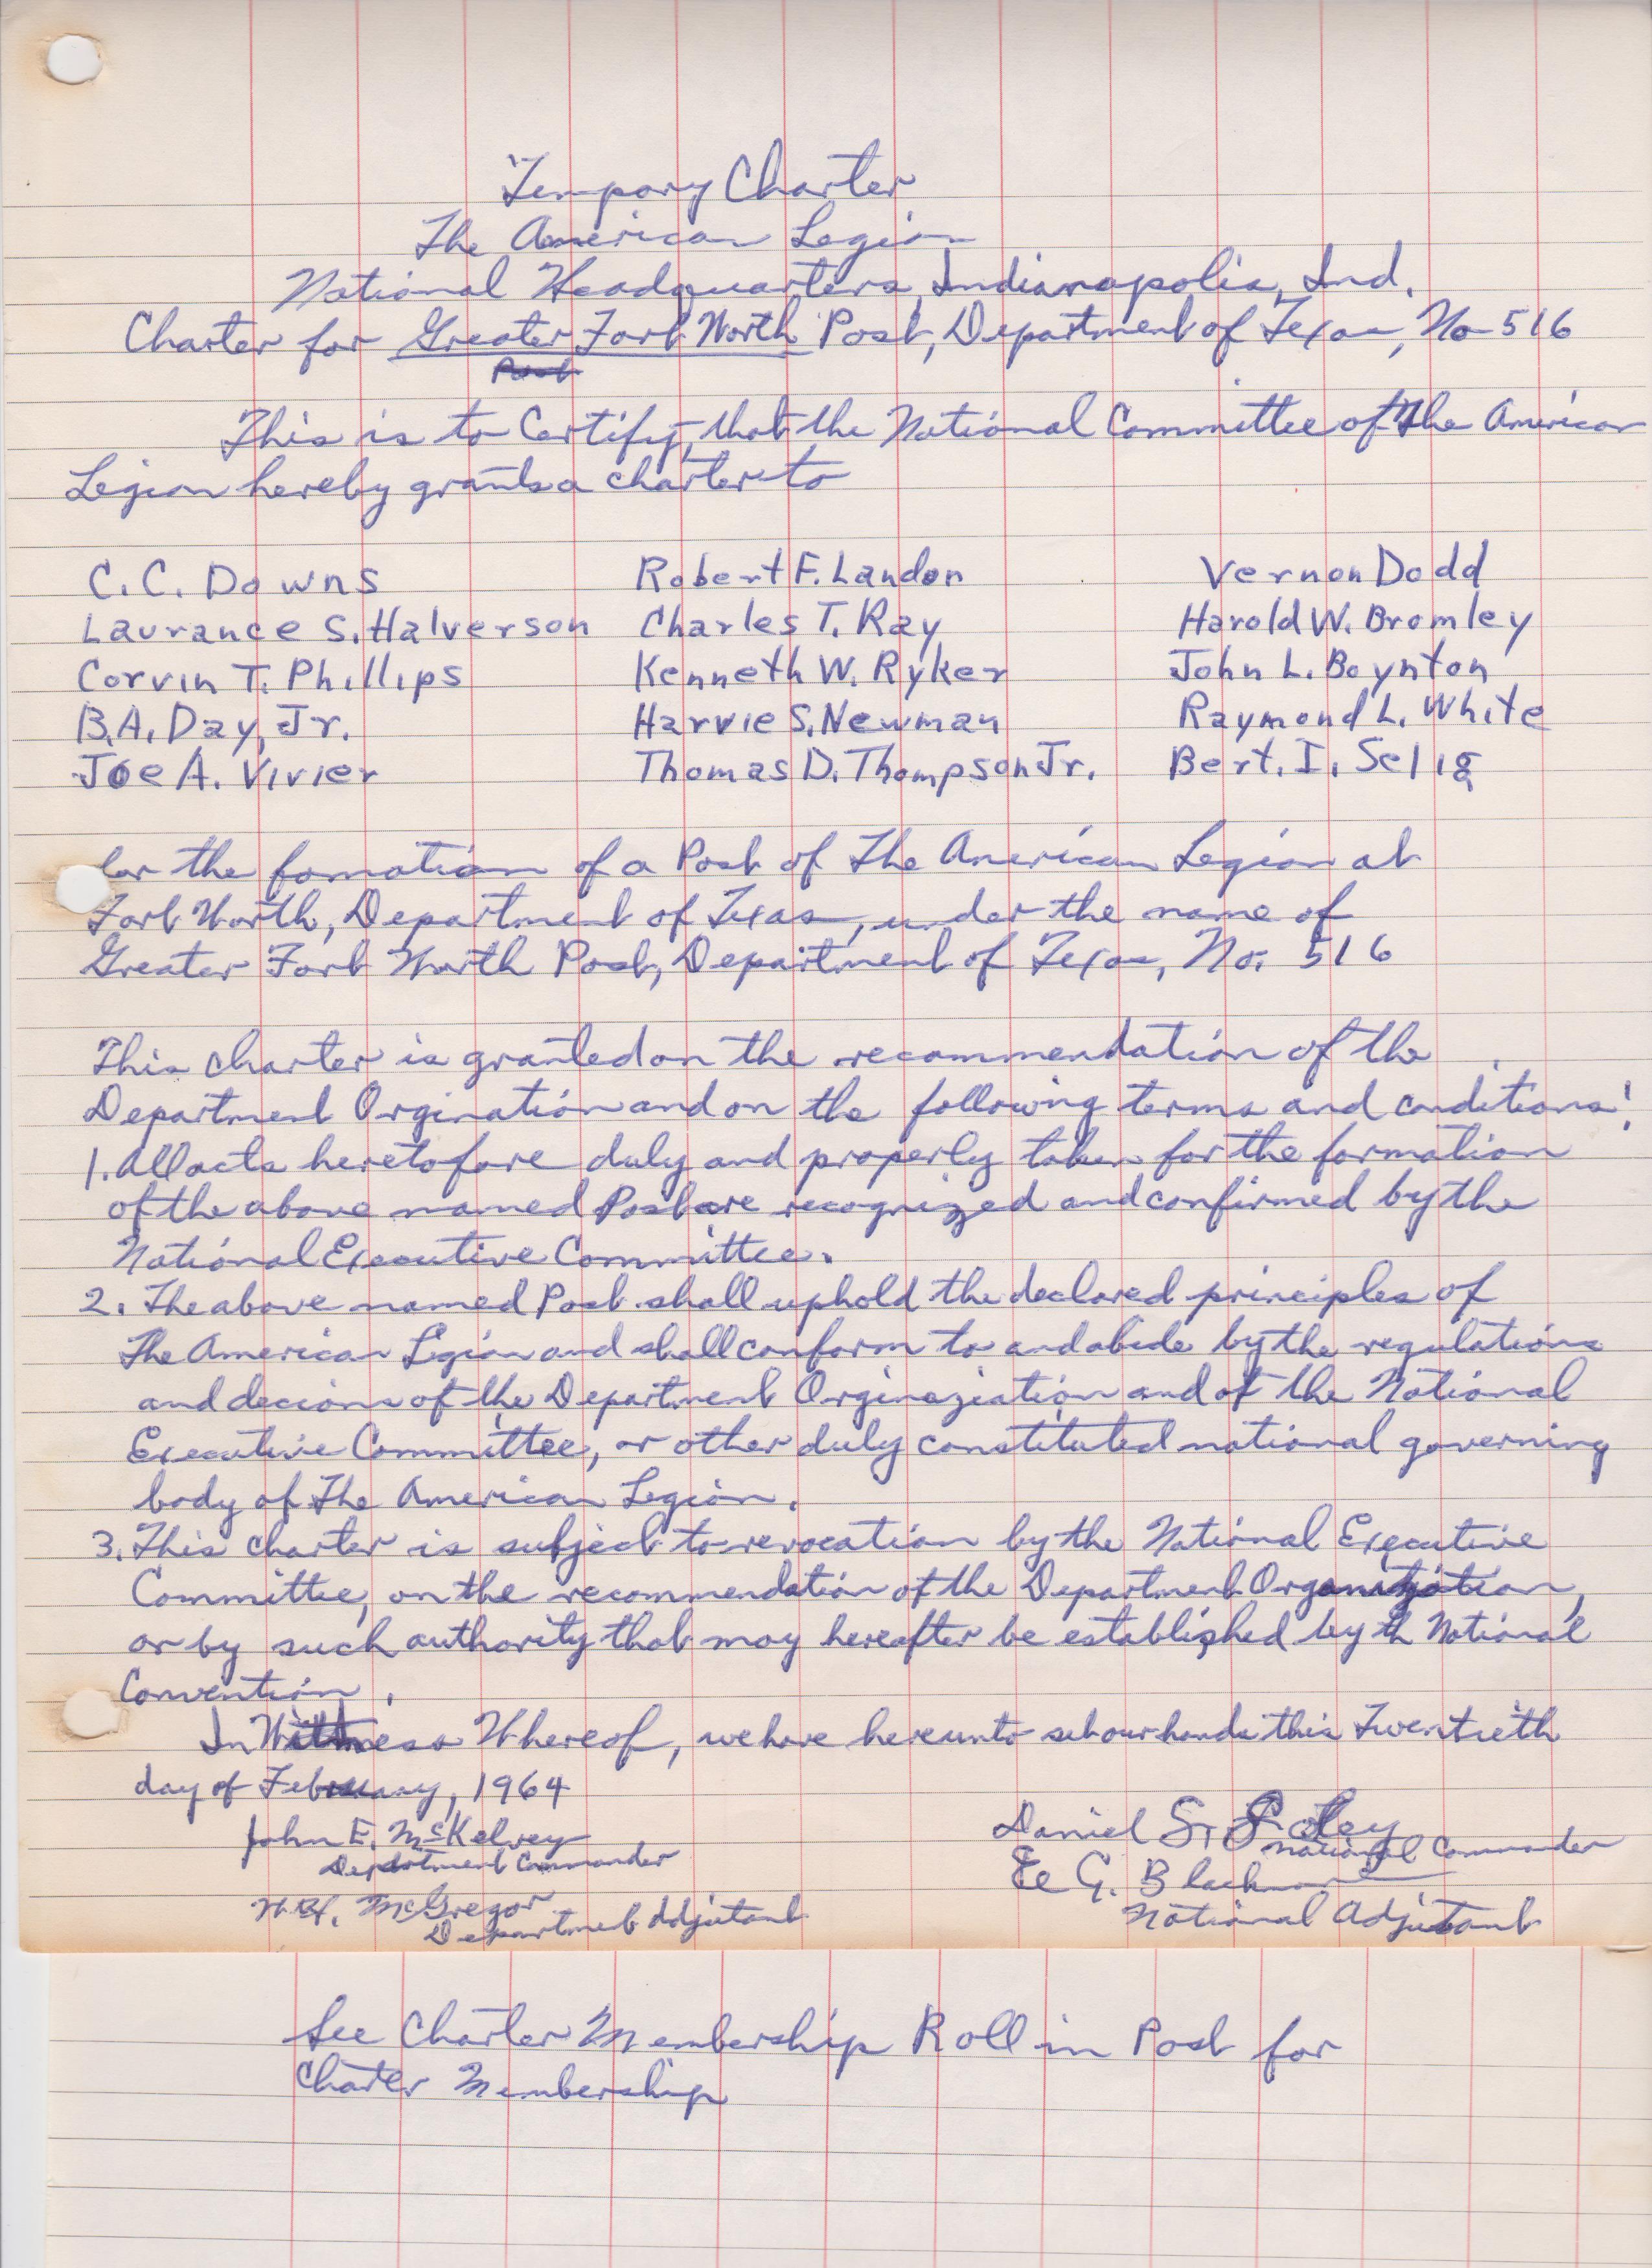 Tempory Charter
The American Legion
National Headquarters, Indianapolis, Ind.
Charter for Greater Fort Worth Post, Department of Texas, No 516
Post
This is to Certify, that the National Committee of The American
Legion hereby grants a charter to
C.C. Downs Robert F. Landon Vernon Dodd
Laurance S. Halverson Charles T. Ray Harold W. Bromley
Corvin T. Phillips Kenneth W. Ryker John L. Boynton
B.A. Day, Jr. Harvie S. Newman Raymond L. White
Joe A. Vivier Thomas D. Thompson Jr. Bert. I. Selig
for the fomation of a Post of The American Legion at
Fort Worth, Department of Texas, under the name of
Greater Fort Worth Post, Department of Texas, No. 516
This charter is granted on the recommendation of the
Department Orgination and on the following terms and conditions:
1. All acts heretofore duly and properly taken for the formation
of the above named Post are recognized and confirmed by the
National Executive Committee.
2. The above named Post shall uphold the declared principles of
The American Legion and shall conform to and abide by the regulations
and decions of the Department Orginaziation and of the National
Executive Committee, or other duly constituted national governing
body of The American Legion.
3. This charter is subject to revocation by the National Executive
Committee, on the recommendation of the Department Organization,
or by such authority that may hereafter be established by th National
Convention.
In Witness Whereof, we have hereunto set our hands this Twentieth
day of February, 1964
John E. McKelvey Daniel S. Foley
Department Commander National Commander
McGregor E. G. Blackmon
Department Adjutant National Adjutant
See Charter Membership Roll in Post for
Charter Membership